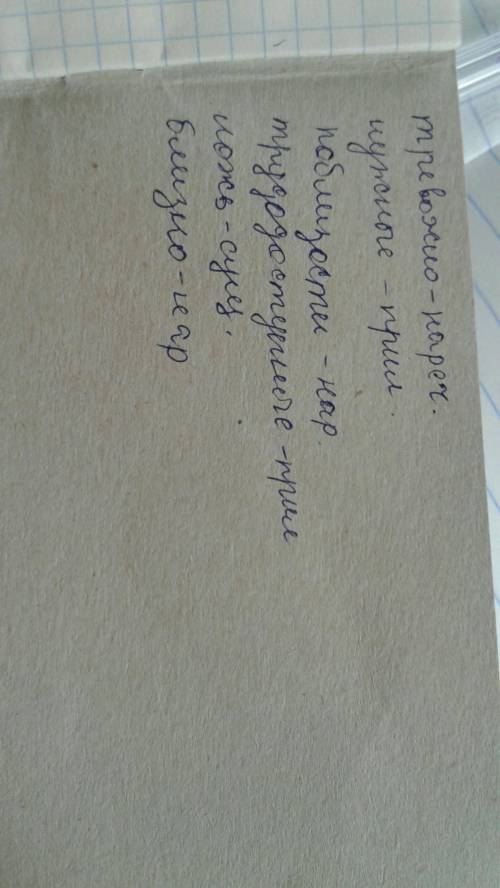 тревожно - нареч.
нужные - прил.
поблизости - нар.
труднодоступные - прил
ложь - сущ.
близко - нар